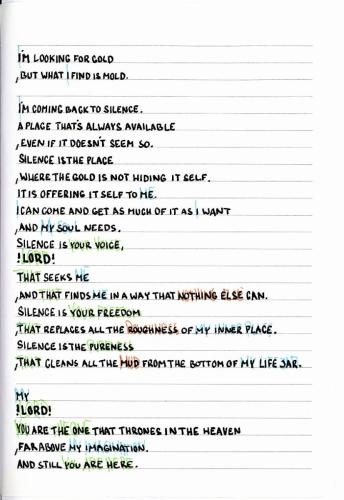 I'M LOOKING FOR GOLD
,BUT WHAT I FIND IS MOLD.
I'M COMING BACK TO SILENCE.
A PLACE THAT'S ALWAYS AVAILABLE
,EVEN IF IT DOESN'T SEEM SO.
SILENCE IS THE PLACE
,WHERE THE GOLD IS NOT HIDING IT SELF.
IT IS OFFERING IT SELF TO ME.
I CAN COME AND GET AS MUCH OF IT AS I WANT
,AND MY SOUL NEEDS.
SILENCE IS YOUR VOICE,
!LORD!
THAT SEEKS ME
,AND THAT FINDS ME IN A WAY THAT NOTHING ELSE CAN.
SILENCE IS YOUR FREEDOM
,THAT REPLACES ALL THE ROUGHNESS OF MY INNER PLACE.
SILENCE IS THE PURENESS
,THAT CLEANS ALL THE MUD FROM THE BOTTOM OF MY LIFE JAR.
MY
!LORD!
YOU ARE THE ONE THAT THRONES IN THE HEAVEN
,FAR ABOVE MY IMAGINATION.
AND STILL YOU ARE HERE.